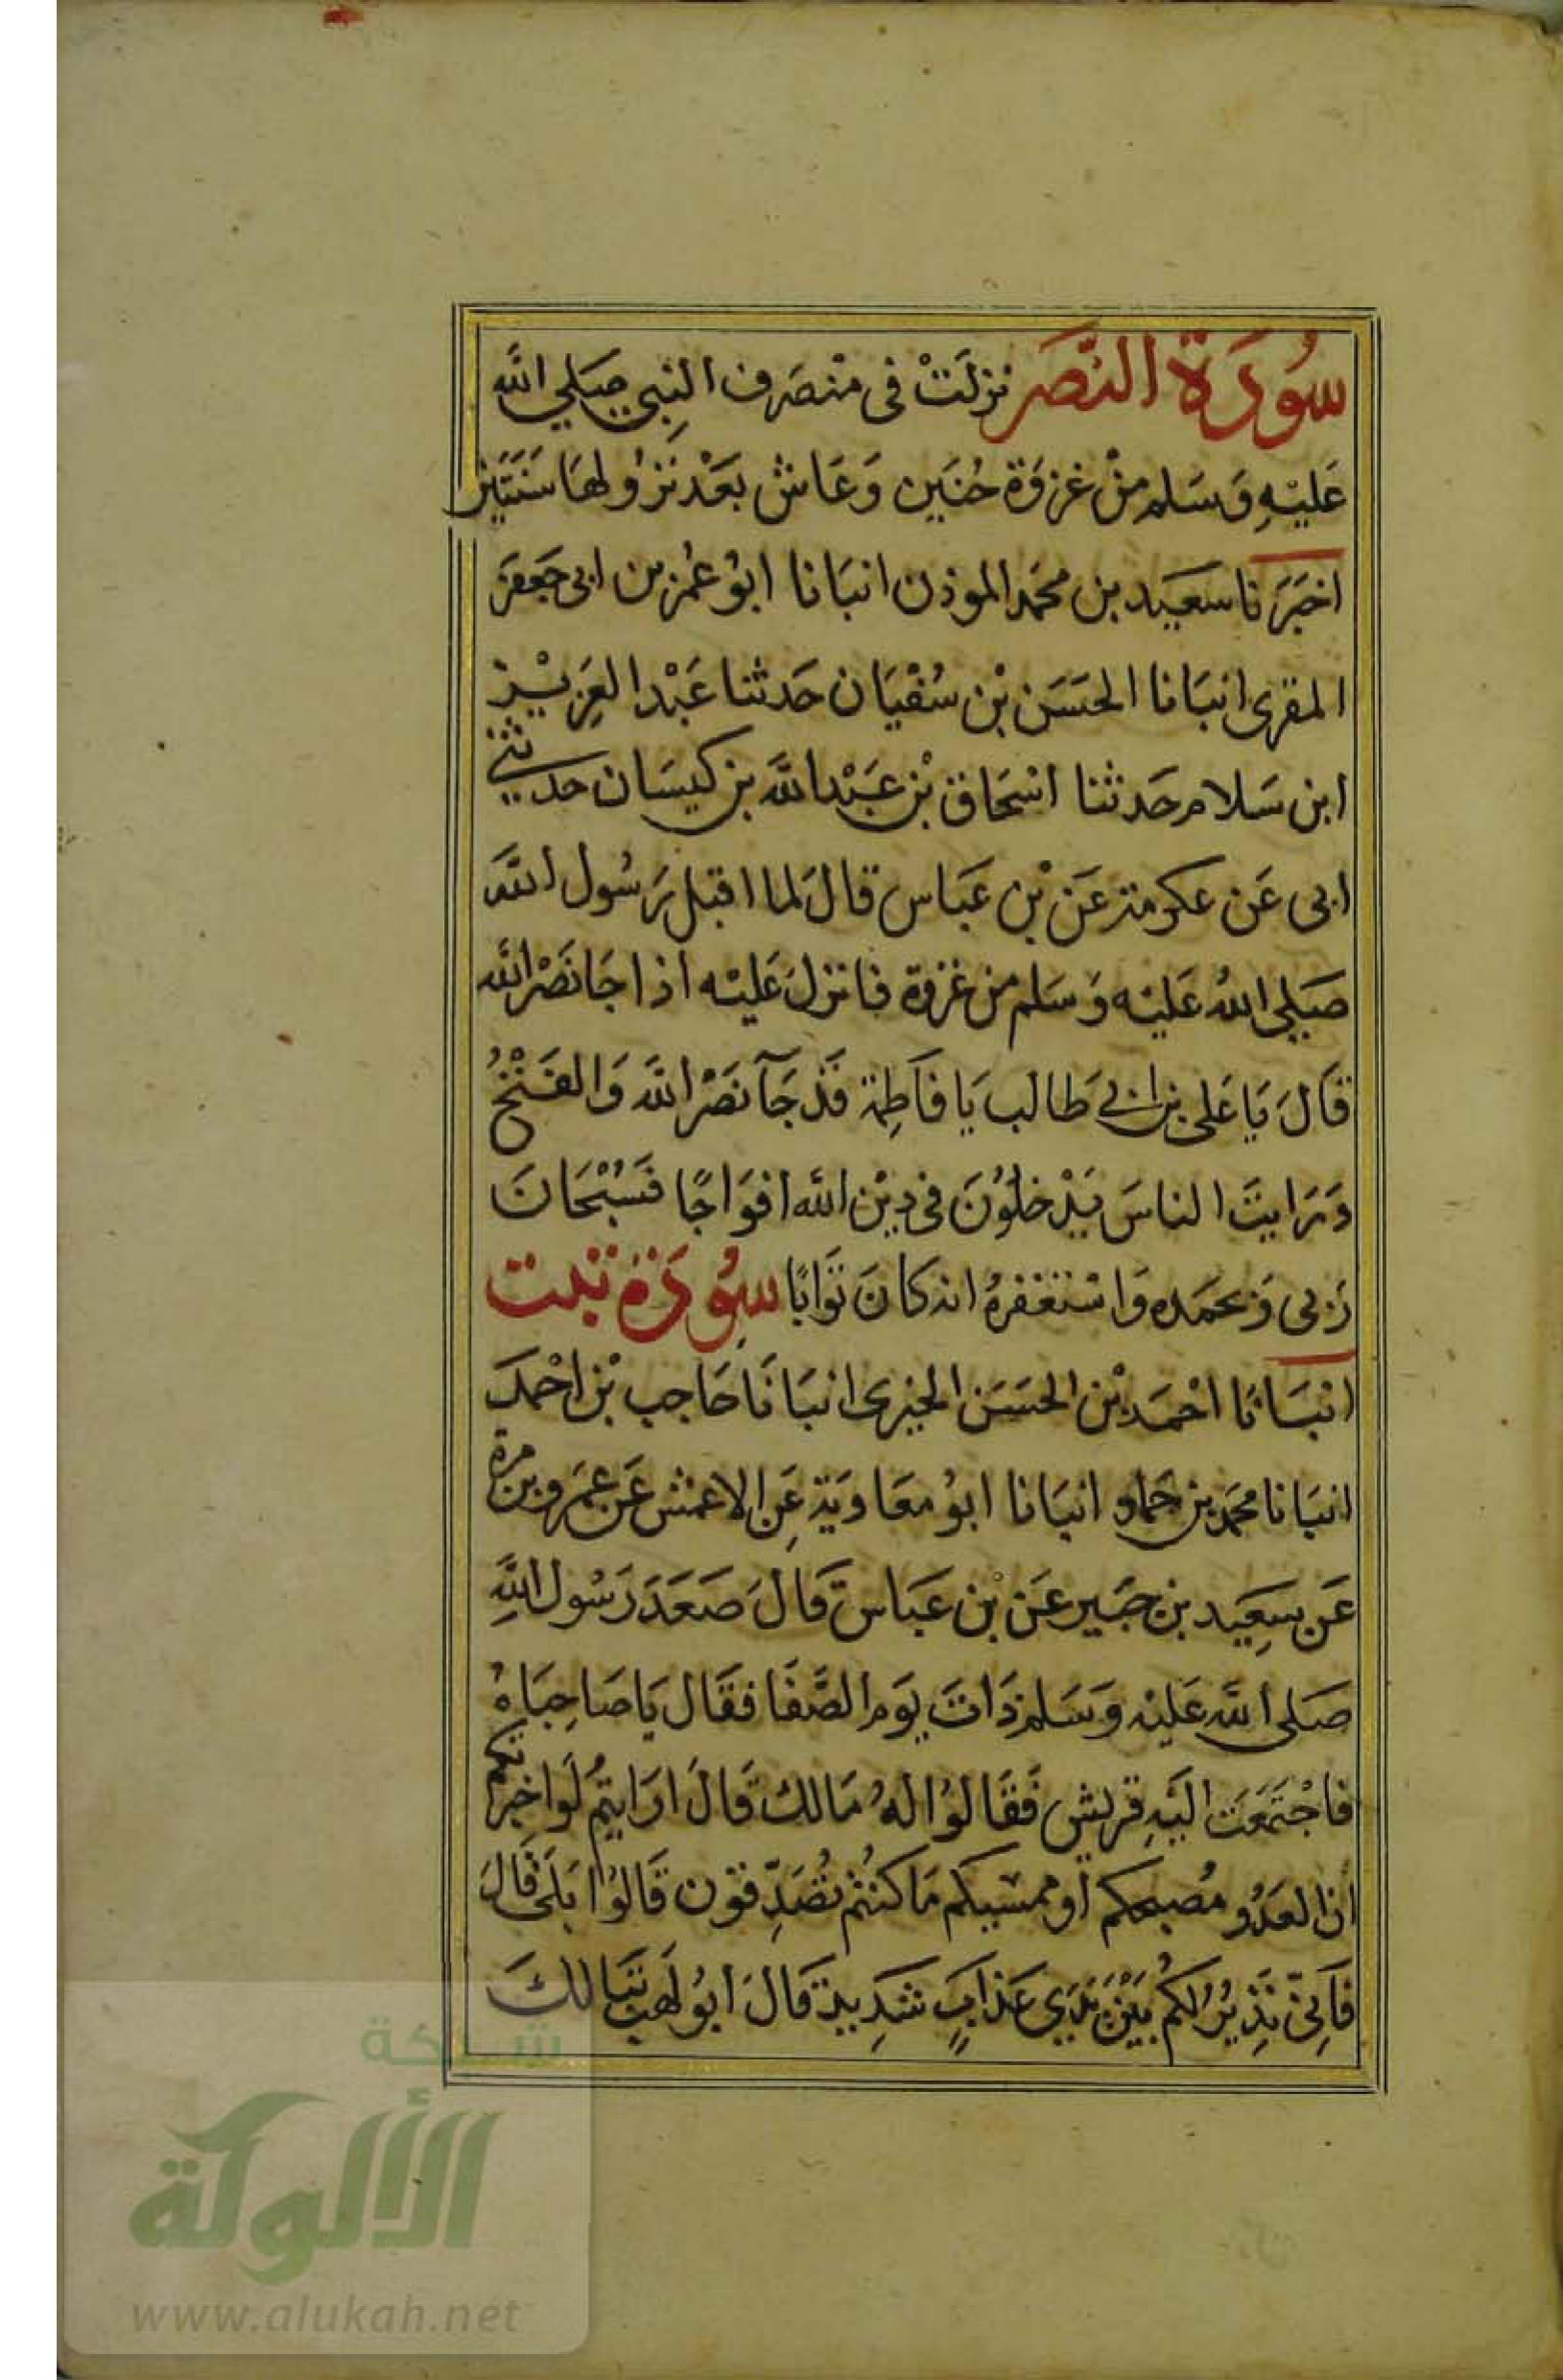 سُورَة النَّصر نزلَتْ فى منْصَرف النبِى صَلى الله
عَليْهِ وَسَلم منْ غزوَة حُنَين وَعَاش بعَدْ نزوُلهَا سَنَتَين
اخبَرَنا سعَيد بن محمَد الموذن انبَانا ابوُ عُمَر بن ابى جعَفَر
المقرى انبَانا الحسَن بْن سُفْيَان حَدثنا عَبْد العَزِيْز
ابن سَلام حَدثنا اسْحَاق بْن عَبْد الله بن كيسَان حدثنى
ابى عَن عكرمة عَنْ بْن عَبَاس قالَ لما اقبل رَسُول الله
صَلى اللهُ عَليْه وَسَلم من غزوة فانزلَ عَليْه اذا جَا نَصْر الله
قَالَ يَا عَلى بن ابى طَالب يَا فَاطِمة قَدْ جَآ نَصْر الله وَالفَتْحُ
وَرَايتَ الناسَ يَدْخلوُنَ فى دِيْن الله افوَاجًا فسُبْحَانَ
رَبى وَبحمَده وَاسْتغفرهُ انه كانَ تَوَابًا سُورَة تبت
انبَانَا احْمَد بْن الحسَن الحيرى انبَانَا حَاجب بْن احْمَد
انبَانا محمَد بن حَماد انبَانا ابوُ معَاويَة عَنِ الاعمش عَن عَمَرو بن مرة
عَن سِعَيد بن جبَير عَن بْن عَبَاس قَالَ صَعَدَ رَسُول اللهِ
صَلى الله عَليْه وَسَلم ذَاتَ يَوم الصَّفَا فقَال يَا صَاحِبَاهُ
فاجْتمَعَت اليَهِ قريش فَقَالوُا لهُ مَالك قَالَ ارَايتمُ لَو اخبرتكم
ان العَدُو مُصبحكم او ممسيكم مَا كنتُم تُصَدِّقون قَالوُا بَلَى قَالَ
فَاِنِّى نَذِيرُ لكمُ بَيْنَ يَدَي عَذابٍ شَدِيد قَالَ ابوُ لَهب تبَا لكَ
شبكة
الألوكة
www.alukah.net